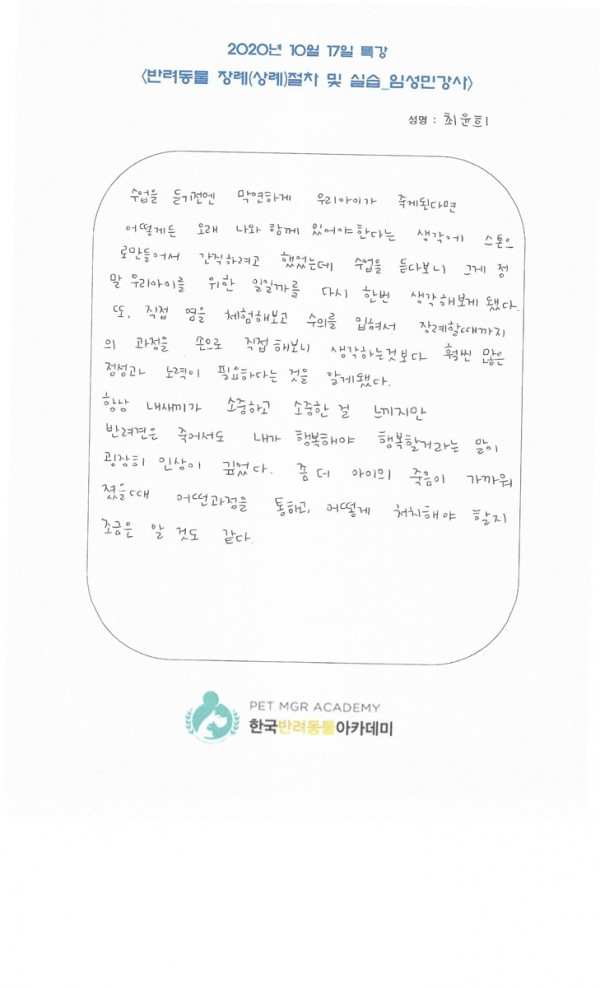 2020년 10월 17일 특강
<반려동물 장례(상례)절차 및 실습_임성민강사>
성명 : 최윤희
수업을 듣기전엔 막연하게 우리아이가 죽게된다면
어떻게든 오래 나와 함께 있어야한다는 생각에 스톤으
로만들어서 간직하려고 했었는데 수업을 듣다보니 그게 정
말 우리아이를 위한 일일까를 다시 한번 생각해보게 됐다.
또, 직접 염을 체험해보고 수의를 입혀서 장례할때까지
의 과정을 손으로 직접 해보니 생각하는것보다 훨씬 많은
정성과 노력이 필요하다는 것을 알게됐다.
항상 내새끼가 소중하고 소중한 걸 느끼지만
반려견은 죽어서도 내가 행복해야 행복할거라는 말이
굉장히 인상이 깊었다. 좀 더 아이의 죽음이 가까워
졌을때 어떤과정을 통하고, 어떻게 처치해야 할지
조금은 알 것도 같다.
PET MGR ACADEMY
한국반려동물아카데미